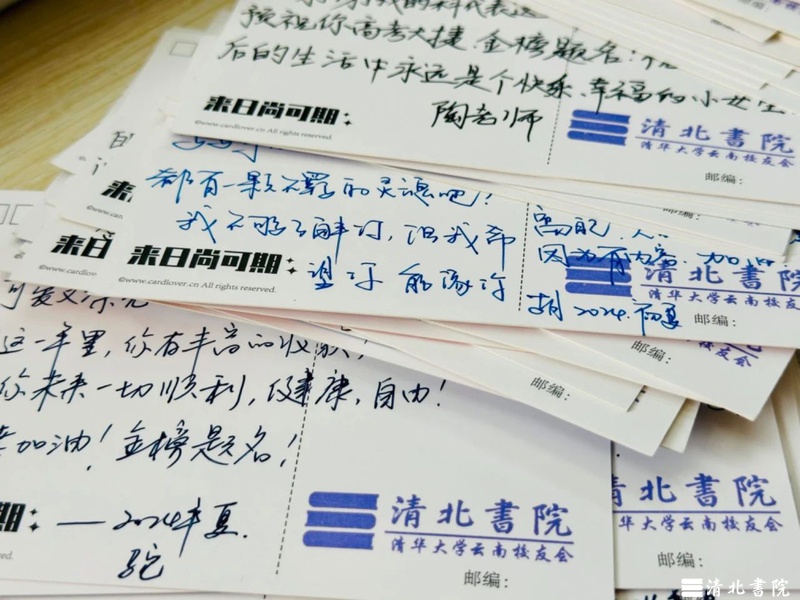 预祝你高考大捷.金榜题名;
后的生活中永远是个快乐、幸福的小女生.
陶老师
来日尚可期
©www.cardlover.cn All rights reserved.
清北書院
清华大学云南校友会
邮编:
都有一颗不羁的灵魂吧!
我不够了解你,但我希
望你能
因为有
2024.初夏
来日
©www.cardlover
来日尚可期
©www.cardlover.cn All rights reserved.
清北書院
清华大学云南校友会
邮编:
邮编:
邮编:
这一年里,你有丰富的收获!
你未来一切顺利,健康,自由!
加油!金榜题名!
期
——2024年夏.
清北書院
清华大学云南校友会
邮编:
清北書院
华大学云南校友会
邮编:
清北書院